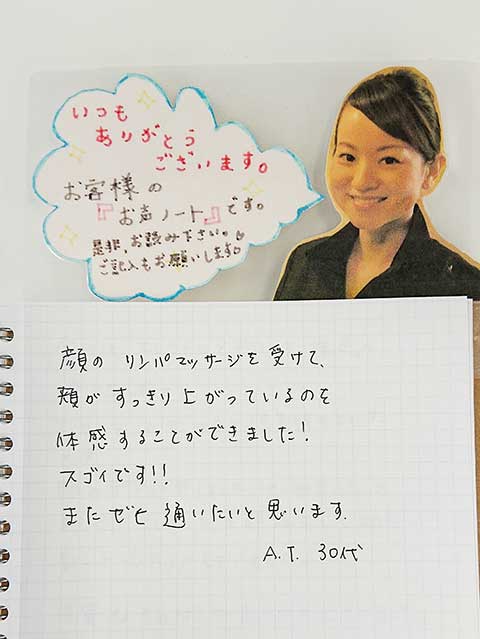 いつも
ありがとう
ございます。
お客様の
『お声ノート』です。
是非、お読み下さい。
ご記入もお願いします
顔の リンパマッサージを受けて、
頬が すっきり上がっているのを
体感することができました!
スゴイです!!
またぜひ 通いたいと思います。
A.T. 30代